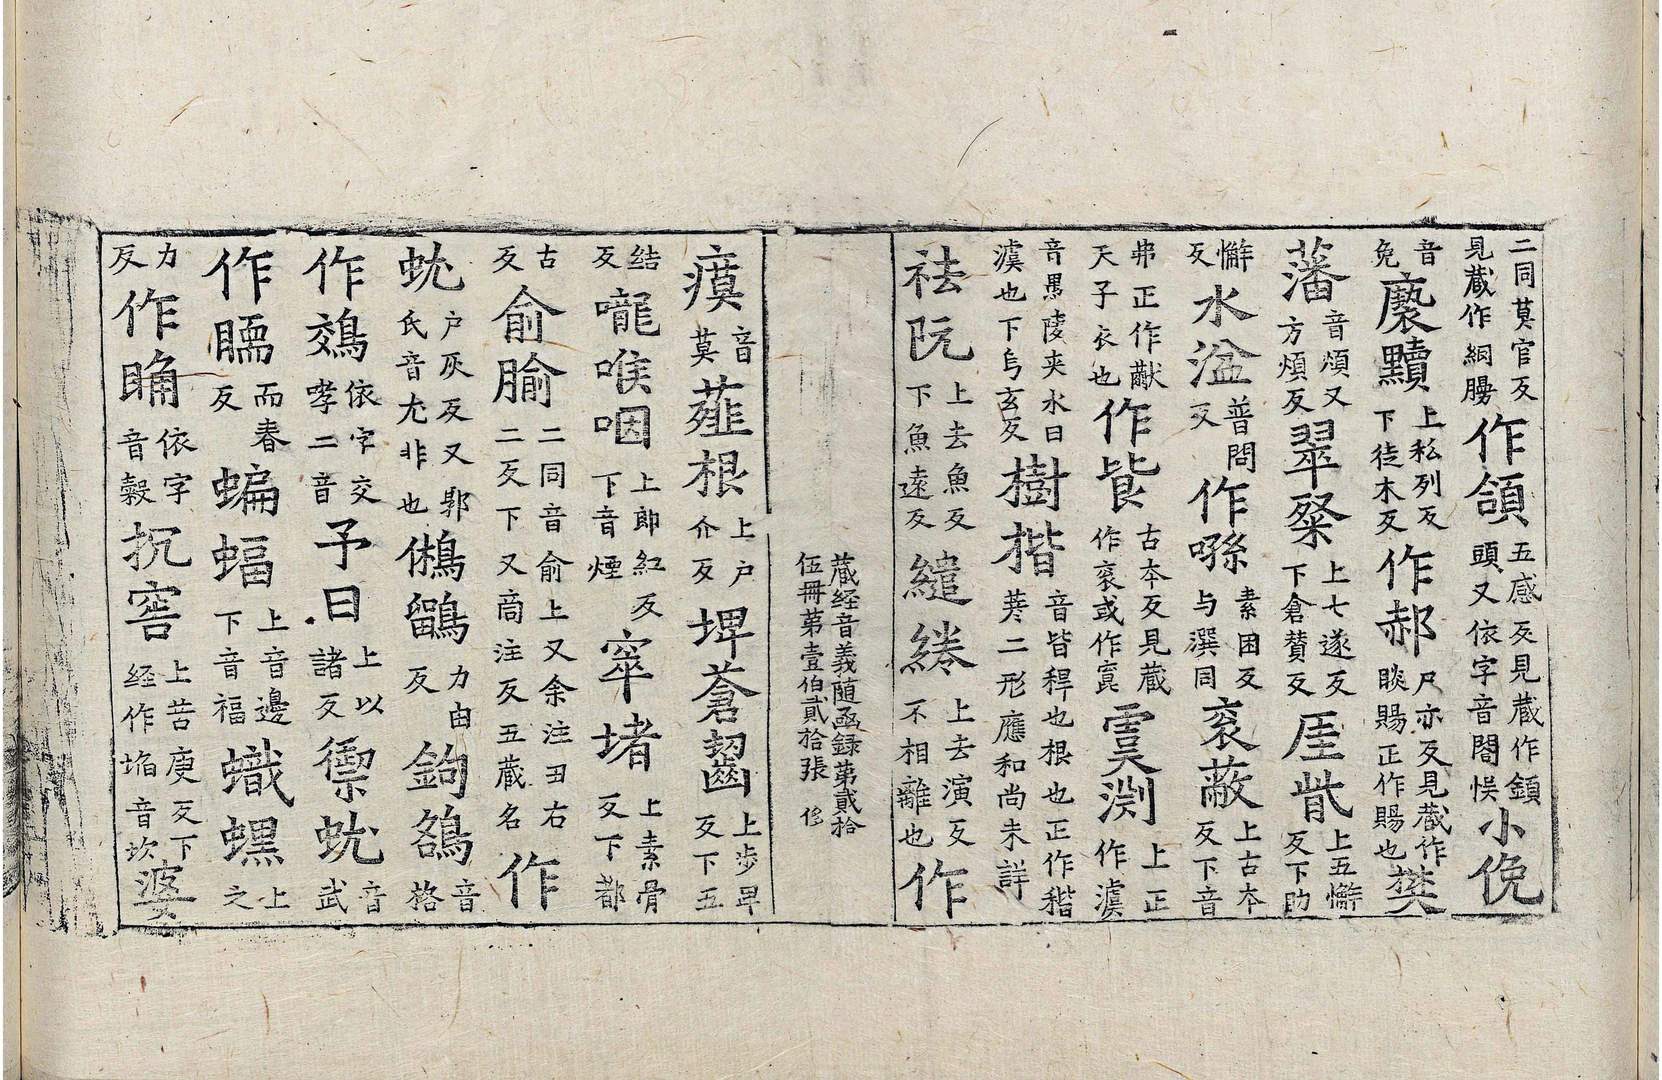 二同莫官反見藏作絅𦝫作頜五感反見藏作顉頭又依字音閤悮小俛
音免褻黷上私列反下徒木反作郝尺亦反見藏作睒賜正作賜也樊
藩音煩又方煩反翠粲上七遂反下倉賛反厓眥上五懈反下助
懈反水湓普問反作㗭素困反与潠同衮蔽上古夲反下音
弗正作黻天子衣也作㫮古夲反見藏作衮或作裛虞渊上正作澞
音愚陵夹水曰澞也下烏玄反樹揩音皆稈也根也正作稭䕸二形應和尚未詳
祛阮上去魚反下魚遠反繾綣上去演反不相離也作
藏経音義随函録第貳拾伍冊第壹伯貳拾張
瘼音莫薤根上戶介反埤蒼齧上步早反下五
結反嚨喉咽上郎紅反下音煙窣堵上素骨反下都
古反俞腧二同音俞上又余注丑右二反下又商注反五藏名作
虺戶灰反又郭氏音尤非也鵂鶹力由反鉤鵅音格
作鵁依字交孝二音予曰上以諸反禦虺音武
作䐑而春反蝙蝠上音邊下音福蟙䘃上之
力反作䀯依字音穀坑窖上苦庚反下経作埳音坎婆